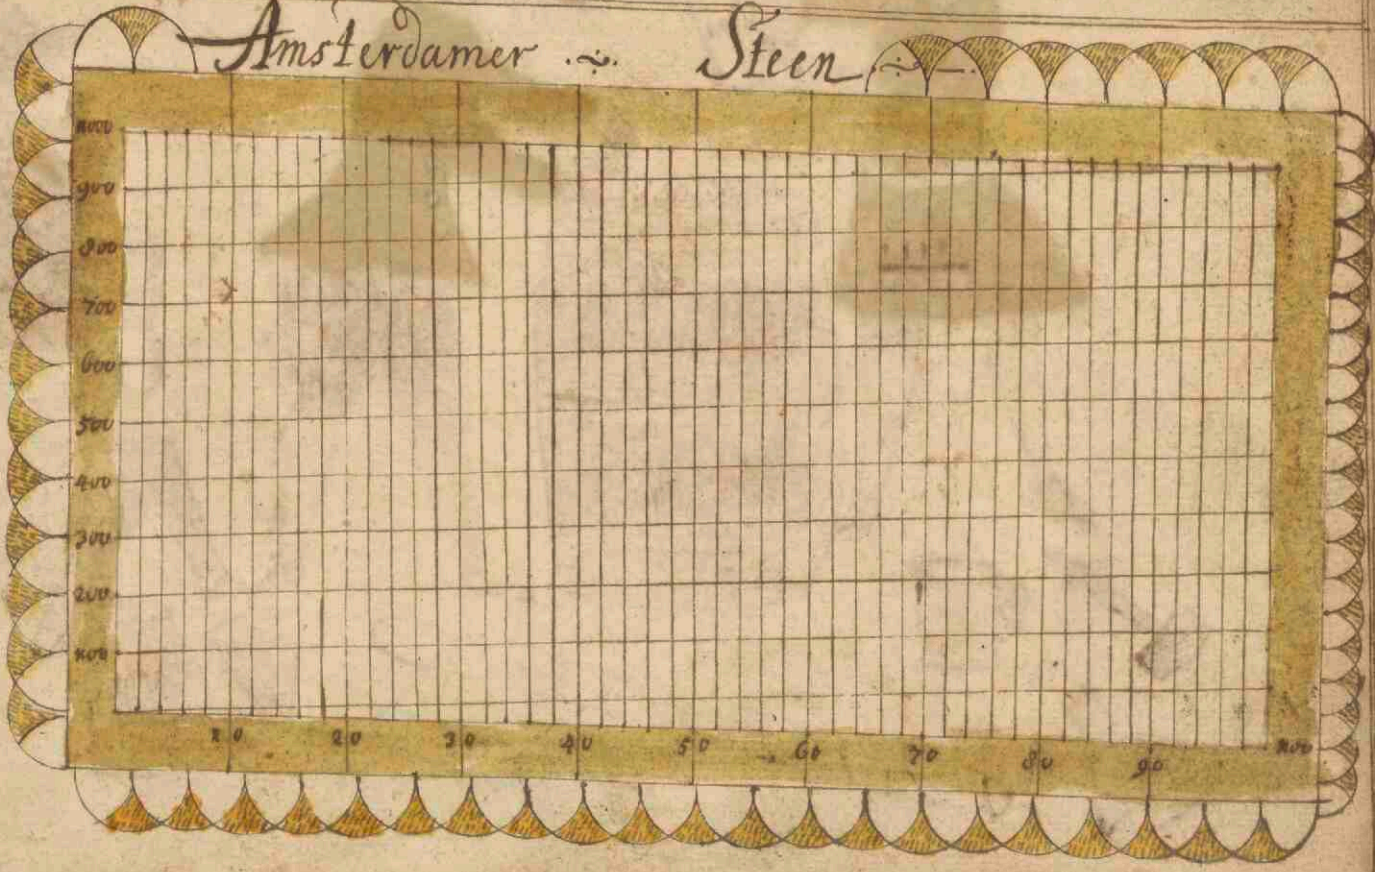 Amsterdamer Steen
1000
900
800
700
600
500
400
300
200
100
10 20 30 40 50 60 70 80 90 100